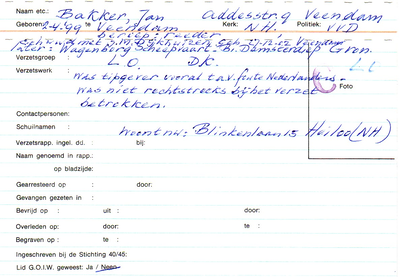 Naam etc.: Bakker, Jan addesstr. 9 Veendam
Geboren: 2-4-99 Veendam Kerk: N.H. Politiek: VVD
beroep: reeder
Later: Wagenborg Scheepvaart- B. Damsterdiep Gron.
Verzetsgroep L.O. D.K.
Verzetswerk : Foto
was tipgever vooral t.a.v. foute Nederlanders -
was niet rechtstreeks bij het verzet
betrokken.
Contactpersonen:
Schuilnamen : woont nu: Blinkenlaan 15 Heiloo (NH)
Verzetsrapp. ingel. dd. : bij:
Naam genoemd in rapp.:
op bladzijde:
Gearresteerd op : door:
Gevangen gezeten in :
Bevrijd op : uit : door:
Overleden op : door: te :
Begraven op : te :
Ingeschreven bij de Stichting 40/45:
Lid G.O.I.W. geweest: Ja / Neen